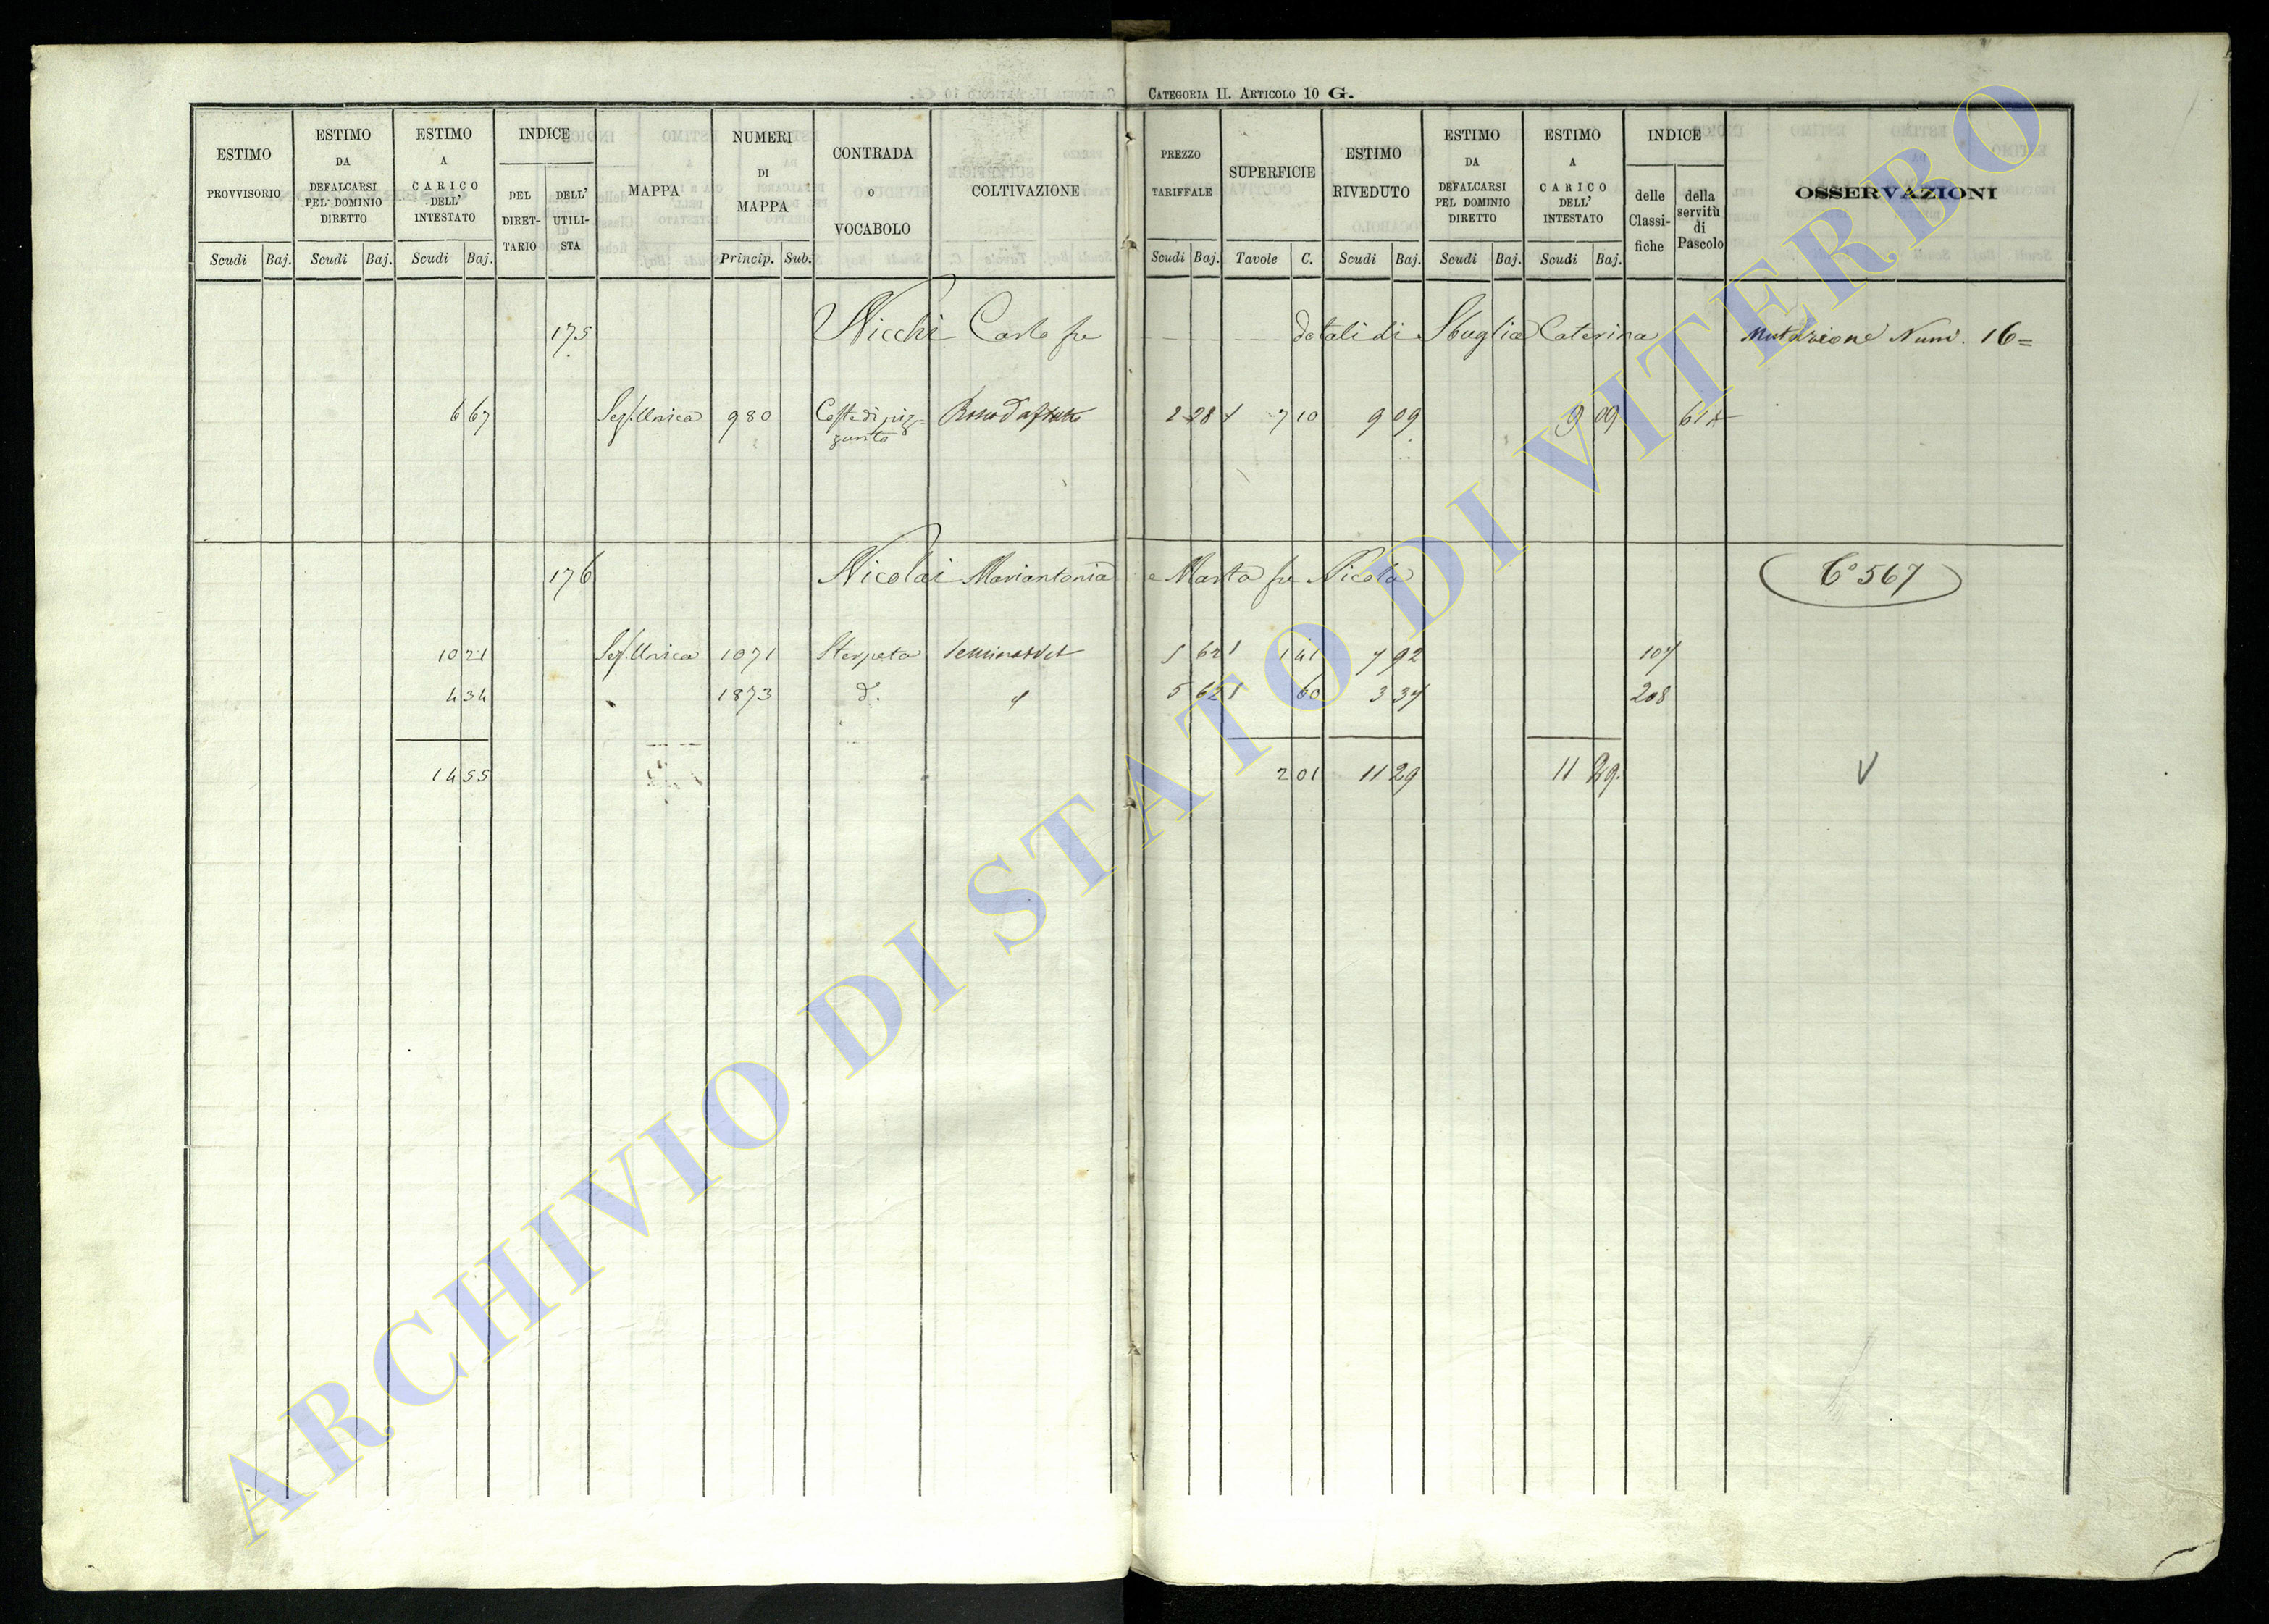 CATEGORIA II. ARTICOLO 10 G.
ESTIMO PROVVISORIO Scudi Baj.
ESTIMO DA DEFALCARSI PEL DOMINIO DIRETTO Scudi Baj.
ESTIMO A CARICO DELL' INTESTATO Scudi Baj.
INDICE DEL DIRET-TARIO DELL' UTILI-STA
MAPPA
NUMERI DI MAPPA Princip. Sub.
CONTRADA o VOCABOLO
COLTIVAZIONE
PREZZO TARIFFALE Scudi Baj.
SUPERFICIE Tavole C.
ESTIMO RIVEDUTO Scudi Baj.
ESTIMO DA DEFALCARSI PEL DOMINIO DIRETTO Scudi Baj.
ESTIMO A CARICO DELL' INTESTATO Scudi Baj.
INDICE delle Classi-fiche della servitù di Pascolo
OSSERVAZIONI
175 Nicchi Carlo fu dotali di Sbuglia Caterina Mutazione Num. 16=
6 67 Sez. Unica 980 Coste di 1 28 7 10 9 09 9 09
176 Nicolai Mariantonia e Marta fu Nicola Co 567
10 21 Sez. Unica 1071 Sterpeta Seminat 5 62 1 41 7 92 107
4 34 1873 d. 5 62 60 3 37 208
14 55 2 01 11 29 11 29
ARCHIVIO DI STATO DI VITERBO